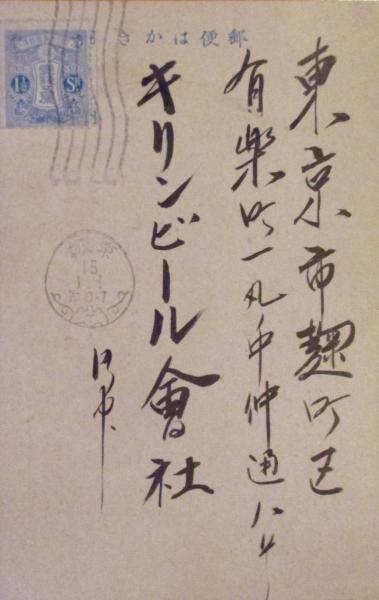 郵便はかき
東京市麹町区
有楽町一丸ノ内仲通八号
キリンビール會社
御中
1½ Sn
15